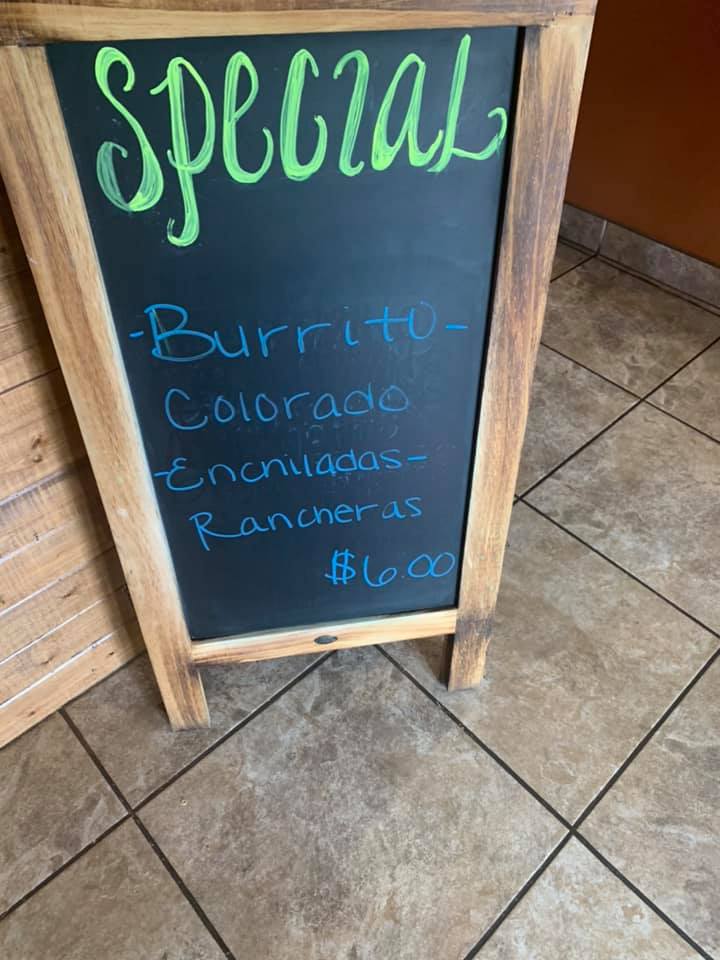 Special
-Burrito-
Colorado
-Enchiladas-
Rancheras
$6.00